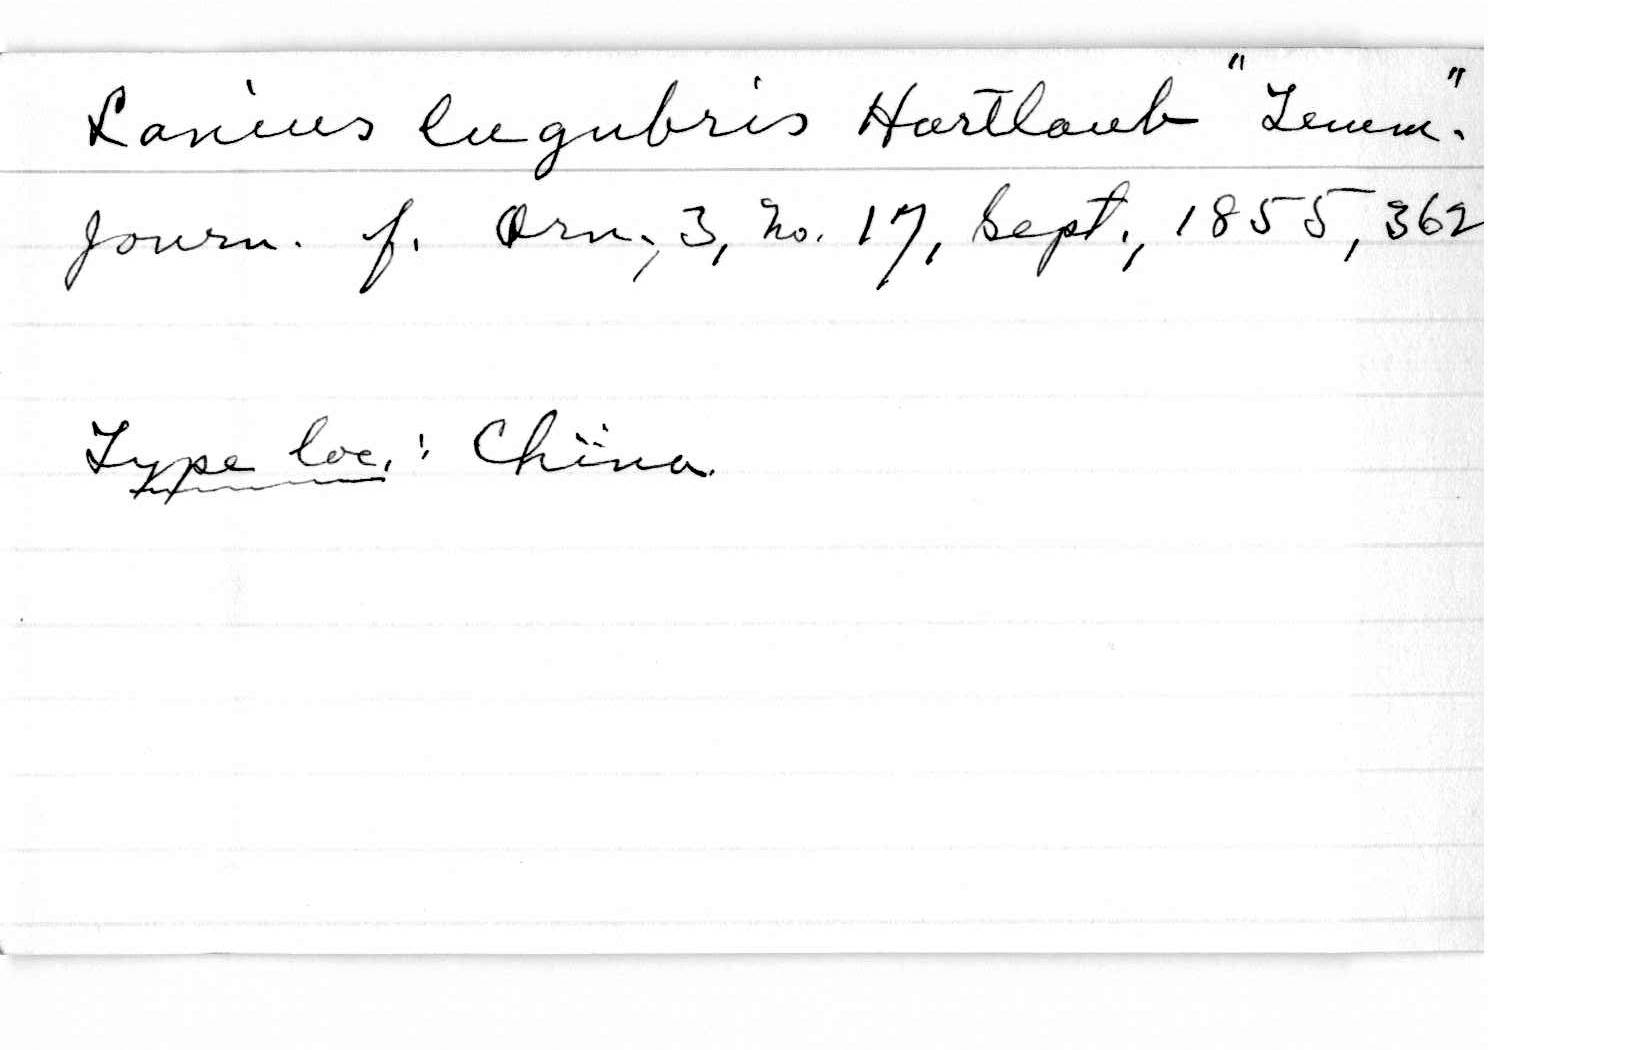 Lanius lugubris Hartlaub "Temm."
Journ. f. Orn., 3, no. 17, Sept., 1855, 362
Type loc.: China.